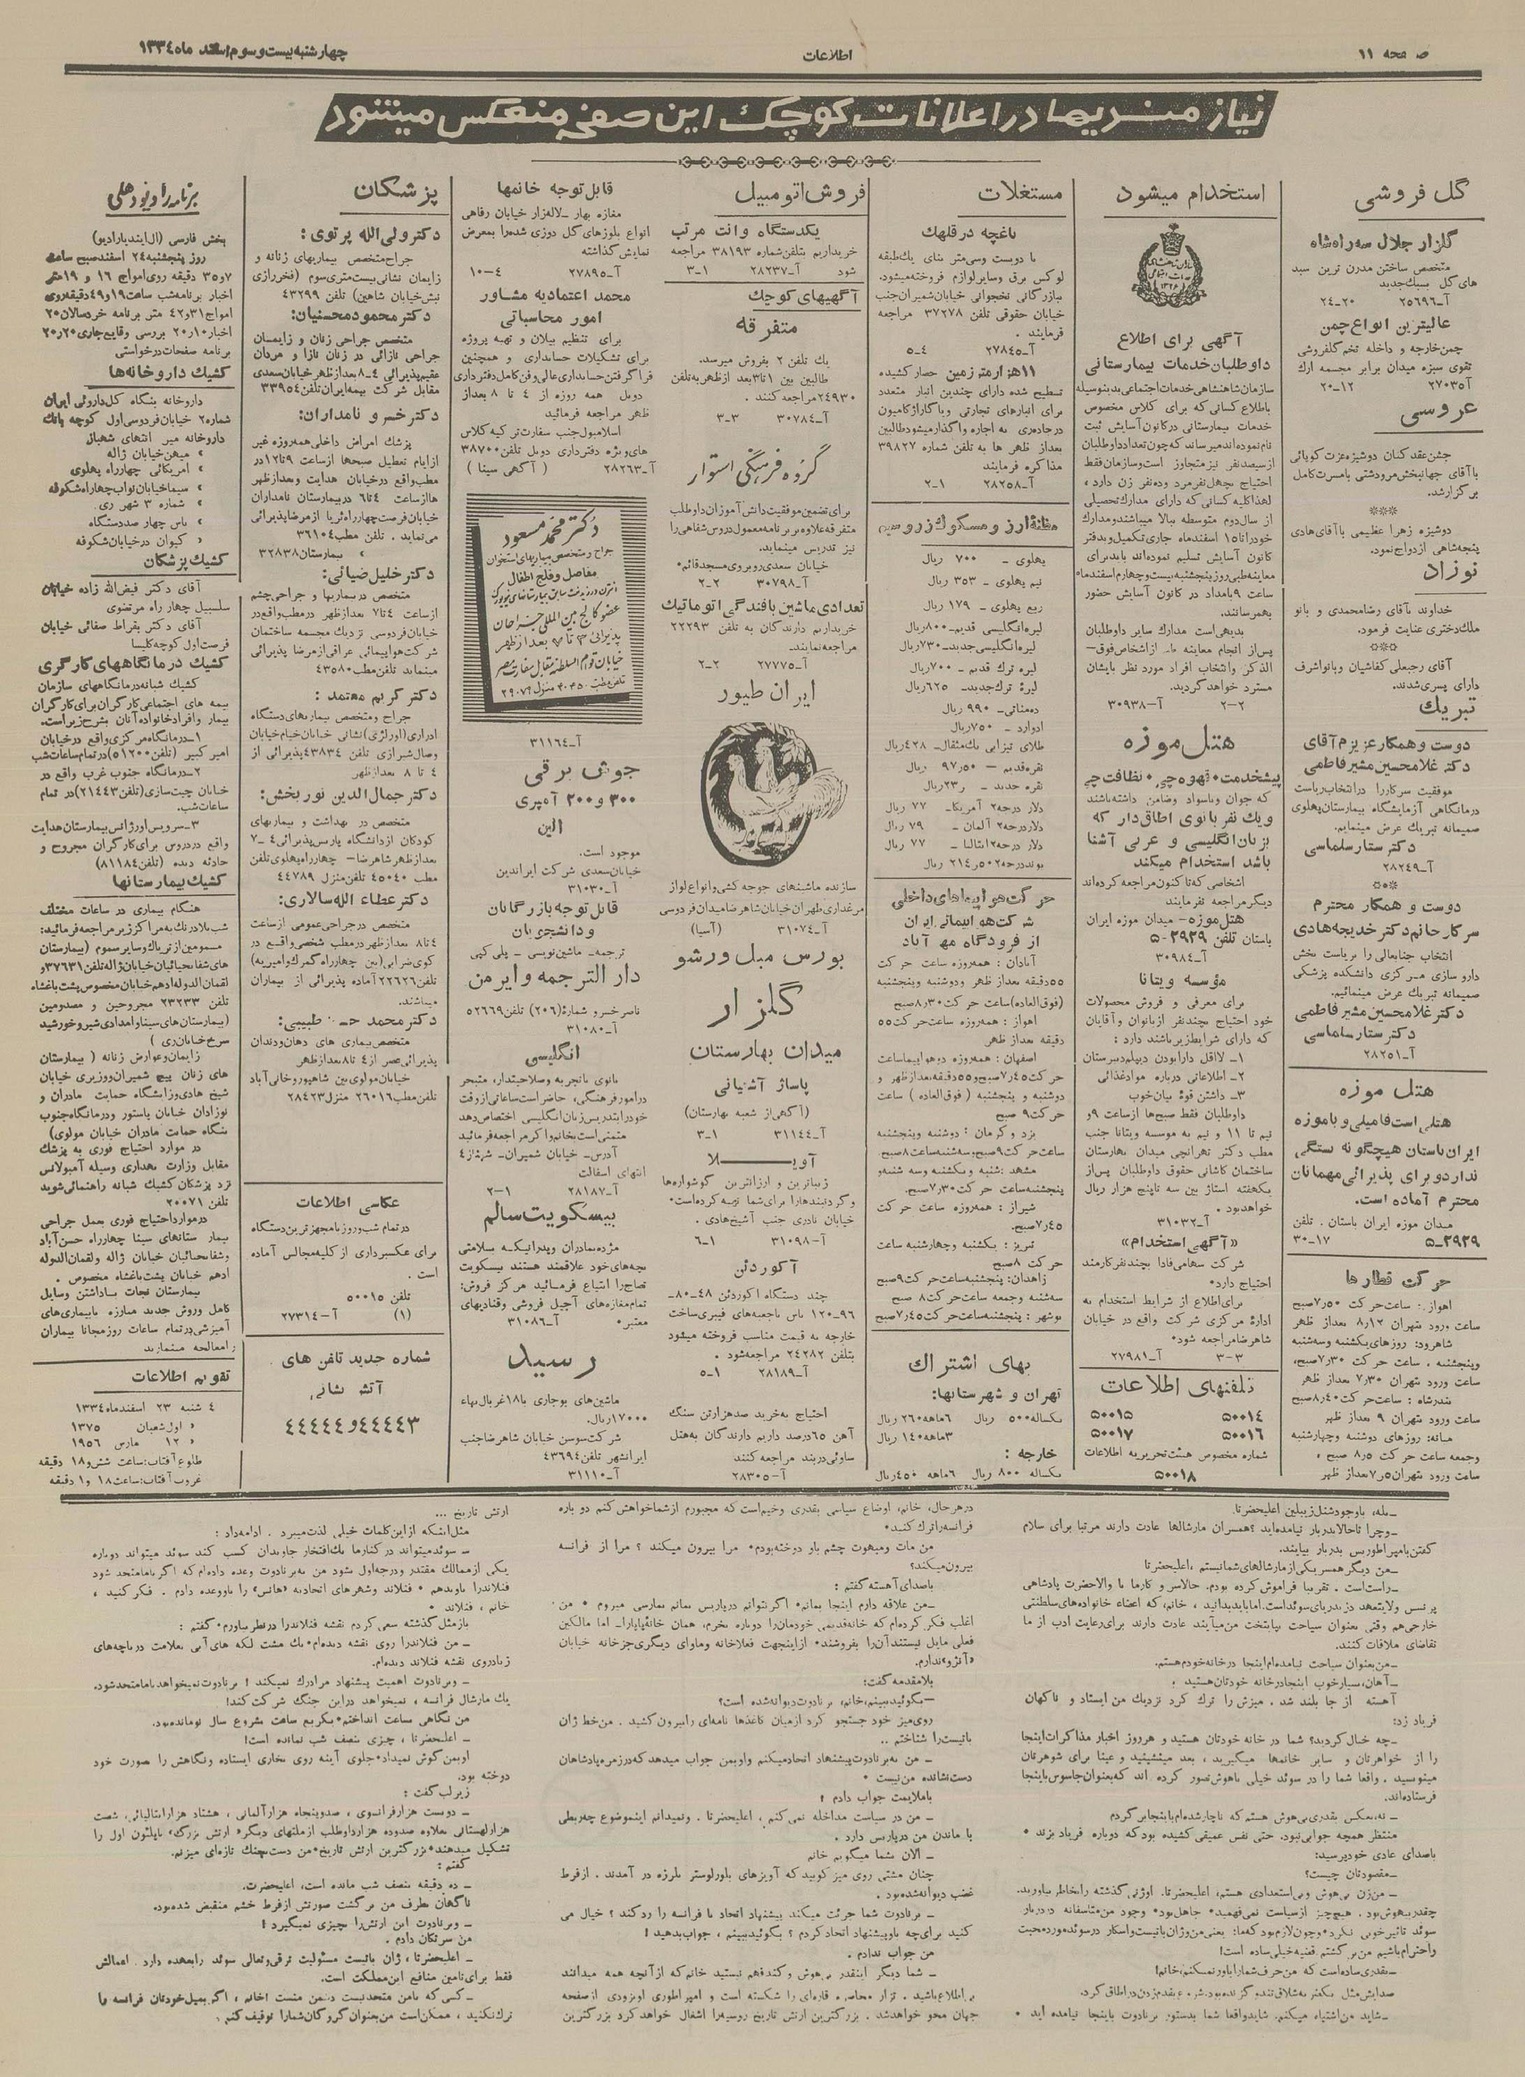 صفحه ۱۱
اطلاعات
چهارشنبه بیست و سوم اسفند ماه ۱۳۳۴
نیازمندیها در اعلانات کوچک این صفحه منعکس میشود
گل فروشی
گلزار جلال سه راه شاه
متخصص ساختن مدرن ترین سبد
های گل بسبک جدید
آ-۲۵۶۹۶ ۲۰-۲۴
عالیترین انواع چمن
چمن خارجه و داخله تخم گلفروشی
تقوی سبزه میدان برابر مجسمه ارک
آ-۲۷۰۳۵ ۱۲-۲۰
عروسی
جشن عقد کنان دوشیزه عزت کوپائی
با آقای جهانبخش مرودشتی با مسرت کامل
برگزار شد.
دوشیزه زهرا عظیمی با آقای هادی
پنجه شاهی ازدواج نمود.
نوزاد
خداوند بآقای رضامحمدی و بانو
ملک دختری عنایت فرمود.
آقای رجبعلی کفاشیان و بانو اشرف
دارای پسری شدند.
تبریک
دوست و همکار عزیزم آقای
دکتر غلامحسین مشیر فاطمی
موفقیت سرکار را در انتخاب ریاست
درمانگاهی آزمایشگاه بیمارستان پهلوی
صمیمانه تبریک عرض مینمایم.
دکتر ستار سلماسی
آ-۲۸۲۴۹
دوست و همکار محترم
سرکار خانم دکتر خدیجه هادی
انتخاب جنابعالی را بریاست بخش
دارو سازی مرکزی دانشکده پزشکی
صمیمانه تبریک عرض مینمائیم.
دکتر غلامحسین مشیر فاطمی
دکتر ستار سلماسی
آ-۲۸۲۵۱
هتل موزه
هتلی است فامیلی و با موزه
ایران باستان هیچگونه بستگی
ندارد و برای پذیرائی مهمانان
محترم آماده است.
میدان موزه ایران باستان . تلفن
۵-۲۹۲۹ ۱۷-۳۰
حرکت قطارها
اهواز: ساعت حرکت ۷٫۵۰ صبح
ساعت ورود بتهران ۸٫۱۲ بعداز ظهر
شاهرود: روزهای یکشنبه و سه شنبه
و پنجشنبه ، ساعت حرکت ۷٫۳۰ صبح،
ساعت ورود بتهران ۷٫۳۰ بعداز ظهر
بندرشاه : ساعت حرکت ۸٫۴۰ صبح
ساعت ورود بتهران ۹ بعداز ظهر
میانه: روزهای دوشنبه و چهارشنبه
و جمعه ساعت حرکت ۸٫۵ صبح
ساعت ورود بتهران ۷٫۵ بعداز ظهر
استخدام میشود
آگهی برای اطلاع
داوطلبان خدمات بیمارستانی
سازمان شاهنشاهی خدمات اجتماعی بدینوسیله
باطلاع کسانی که برای کلاس مخصوص
خدمات بیمارستانی در کانون آسایش ثبت
نام نموده اند میرساند که چون تعداد داوطلبان
از سیصد نفر نیز متجاوز است و سازمان فقط
احتیاج بچهل نفر مرد و ده نفر زن دارد ،
لهذا کلیه کسانی که دارای مدارک تحصیلی
از سال دوم متوسطه ببالا میباشند و مدارک
خود را تا ۱۵ اسفند ماه جاری تکمیل و بدفتر
کانون آسایش تسلیم نموده اند باید برای
معاینه طبی روز پنجشنبه بیست و چهارم اسفند ماه
ساعت ۹ بامداد در کانون آسایش حضور
بهمرسانند.
بدیهی است مدارک سایر داوطلبان
پس از انجام معاینه از اشخاص فوق
الذکر و انتخاب افراد مورد نظر بایشان
مسترد خواهد گردید.
آ-۳۰۹۳۸ ۲-۲
هتل موزه
پیشخدمت • قهوه چی • نظافت چی
که جوان و باسواد و ضامن داشته باشند
و یک نفر بانوی اطاق دار که
بزبان انگلیسی و عربی آشنا
باشد استخدام میکند
اشخاصی که تاکنون مراجعه کرده اند
دیگر مراجعه نفرمایند
هتل موزه - میدان موزه ایران
باستان تلفن ۲۹۲۹-۵
آ-۳۰۹۸۴
مؤسسه ویتانا
برای معرفی و فروش محصولات
خود احتیاج بچند نفر از بانوان و آقایان
که دارای شرایط زیر باشند دارد :
۱- لااقل دارا بودن دیپلم دبیرستان
۲- اطلاعاتی درباره مواد غذائی
۳- داشتن قوهٔ بیان خوب
داوطلبان فقط صبح ها از ساعت ۹ و
نیم تا ۱۱ و نیم به موسسه ویتانا جنب
مطب دکتر تهرانچی میدان بهارستان
ساختمان کاشانی حقوق داوطلبان پس از
یکهفته استاژ بین سه تا پنج هزار ریال
خواهد بود .
آ-۳۱۰۳۲
«آگهی استخدام»
شرکت سهامی فادا بچند نفر کارمند
احتیاج دارد•
برای اطلاع از شرایط استخدام به
ادارهٔ مرکزی شرکت واقع در خیابان
شاهرضا مراجعه شود•
آ-۲۷۹۸۱ ۳-۳
تلفنهای اطلاعات
۵۰۰۱۴ ۵۰۰۱۵
۵۰۰۱۶ ۵۰۰۱۷
شماره مخصوص هیئت تحریریه اطلاعات
۵۰۰۱۸
مستغلات
باغچه در قلهک
با دویست وسی متر بنای یک طبقه
لوکس برق و سایر لوازم فروخته میشود.
ببازرگانی نخجوانی خیابان شمیران جنب
خیابان حقوقی تلفن ۳۷۲۷۸ مراجعه
فرمایند .
آ-۲۷۸۴۵ ۴-۵
۱۱هزار متر زمین حصار کشیده
تسطیح شده دارای چندین انبار متعدد
برای انبارهای تجارتی و یا گاراژ کامیون
در جاده ری به اجاره واگذار میشود طالبین
بعداز ظهر ها به تلفن شماره ۳۹۸۲۷
مذاکره فرمایند
آ-۲۸۲۵۸ ۱-۲
مظنهٔ ارز و مسکوک زر و سیم
پهلوی - ۷۰۰ ریال
نیم پهلوی - ۳۵۳ ریال
ربع پهلوی - ۱۷۹ ریال
لیره انگلیسی قدیم - ۸۰۰ ریال
لیره انگلیسی جدید - ۷۳۰ ریال
لیره ترک قدیم - ۷۰۰ ریال
لیرهٔ ترک جدید - ۶۲۵ ریال
ده مناتی - ۹۹۰ ریال
ادوارد - ۷۵۰ ریال
طلای تیزابی یک مثقال - ۴۲۸ ریال
نقره قدیم - ۹۷٫۵۰ ریال
نقره جدید - ۲۳٫ ریال
دلار درجه ۲ آمریکا - ۷۷ ریال
دلار درجه ۲ آلمان - ۷۹ ریال
دلار درجه ۲ ایتالیا - ۷۷ ریال
پوند درجه ۲ ۲۱۴٫۵۰ ریال
حرکت هواپیماهای داخلی
شرکت هواپیمائی ایران
از فرودگاه مهرآباد
آبادان : همه روزه ساعت حرکت
۵۵دقیقه بعداز ظهر و دوشنبه و پنجشنبه
(فوق العاده) ساعت حرکت ۸٫۳۰ صبح
اهواز : همه روزه ساعت حرکت ۵۵
دقیقه بعداز ظهر
اصفهان : همه روزه دو هواپیما ساعت
حرکت ۷٫۴۵ صبح و ۵۵دقیقه بعدازظهر و
دوشنبه و پنجشنبه ( فوق العاده ) ساعت
حرکت ۹ صبح
یزد و کرمان : دوشنبه و پنجشنبه
ساعت حرکت ۹صبح، سه شنبه ساعت ۸ صبح.
مشهد : شنبه و یکشنبه و سه شنبه و
پنجشنبه ساعت حرکت ۷٫۳۰ صبح.
شیراز : همه روزه ساعت حرکت
۷٫۴۵ صبح.
تبریز : یکشنبه و چهارشنبه ساعت
حرکت ۸ صبح
زاهدان: پنجشنبه ساعت حرکت ۹ صبح
سه شنبه و جمعه ساعت حرکت ۸ صبح
بوشهر : پنجشنبه ساعت حرکت ۷٫۴۵ صبح
بهای اشتراک
تهران و شهرستانها:
یکساله ۵۰۰ ریال ۶ماهه ۲۶۰ ریال
۳ماهه ۱۴۰ ریال
خارجه :
یکساله ۸۰۰ ریال ۶ماهه ۴۵۰ ریال
فروش اتومبیل
یکدستگاه وانت مرتب
خریداریم بتلفن شماره ۳۸۱۹۳ مراجعه
شود آ-۲۸۲۳۷ ۱-۳
آگهیهای کوچک
متفرقه
یک تلفن ۲ بفروش میرسد.
طالبین بین ۱ تا ۳ بعد از ظهر به تلفن
۲۴۹۳۰ مراجعه کنند .
آ-۳۰۷۸۴ ۳-۳
گروه فرهنگی استوار
برای تضمین موفقیت دانش آموزان داوطلب
متفرقه علاوه بر برنامه معمول دروس شفاهی را
نیز تدریس مینماید.
خیابان سعدی روبروی مسجد قائم•
آ-۳۰۷۹۸ ۲-۲
تعدادی ماشین بافندگی اتوماتیک
خریداریم دارندگان به تلفن ۲۲۲۹۳
مراجعه نمایند.
آ-۲۷۷۷۵ ۲-۲
ایران طیور
سازنده ماشینهای جوجه کشی و انواع لوازم
مرغداری طهران خیابان شاهرضا میدان فردوسی
آ-۳۱۰۷۴ (آسیا)
بورس مبل ورشو
گلزار
میدان بهارستان
پاساژ آشتیانی
(آگهی از شعبه بهارستان)
آ-۳۱۱۴۴ ۱-۳
آویلا
زیباترین و ارزانترین گوشواره ها
و گردنبندها را برای شما تهیه کرده است•
خیابان نادری جنب آشیخ هادی .
آ-۳۱۰۹۸ ۱-۶
آکوردئن
چند دستگاه اکوردئن ۴۸-۸۰-
۹۶-۱۲۰ باس با جعبه های فیبری ساخت
خارجه به قیمت مناسب فروخته میشود
بتلفن ۲۴۲۸۲ مراجعه شود .
آ-۲۸۱۸۹ ۱-۵
احتیاج به خرید صد هزار تن سنگ
آهن ۶۵درصد داریم دارندگان به هتل
ساوئی دربند مراجعه کنند
آ-۲۸۳۰۵
قابل توجه خانمها
مغازه بهار - لاله زار خیابان رفاهی
انواع بلوزهای گل دوزی شده را بمعرض
نمایش گذاشته
آ-۲۷۸۹۵ ۴-۱۰
محمد اعتمادیه مشاور
امور محاسباتی
برای تنظیم بیلان و تهیه پروژه
برای تشکیلات حسابداری و همچنین
فرا گرفتن حسابداری عالی و فن کامل دفترداری
دوبل همه روزه از ۴ تا ۸ بعداز
ظهر مراجعه فرمائید
اسلامبول جنب سفارت ترکیه کلاس
های ویژه دفترداری دوبل تلفن ۳۸۷۰۰
آ-۲۸۲۶۳ (آگهی سینا)
دکتر محمد مسعود
جراح و متخصص بیماریهای استخوان
مفاصل و فلج اطفال
عضو کالج بین المللی جراحان
خیابان قوام السلطنه مقابل سفارت مصر
آ-۳۱۱۶۴
جوش برقی
۳۰۰ و ۲۰۰ آمپری
الین
موجود است.
خیابان سعدی شرکت ایراندین
آ-۳۱۰۳۰
قابل توجه بازرگانان
و دانشجویان
ترجمه - ماشین نویسی - پلی کپی
دارالترجمه وایرمن
ناصر خسرو شمارهٔ (۲۰۶) تلفن ۵۲۶۶۹
آ-۳۱۰۸۰
انگلیسی
بانوی باتجربه و صلاحیتدار، متبحر
در امور فرهنگی، حاضر است ساعاتی از وقت
خود را بتدریس زبان انگلیسی اختصاص دهد
متمنی است بخانم واکر مراجعه فرمائید
آدرس - خیابان شمیران - شماره ۴
انتهای اسفالت
آ-۲۸۱۸۷ ۱-۲
بیسکویت سالم
مژده مادران و پدرانیکه بسلامتی
بچه های خود علاقمند هستند بیسکویت
نصاج را ابتیاع فرمائید مرکز فروش:
تمام مغازه های آجیل فروشی و قنادیهای
معتبر• آ-۳۱۰۸۶
رسید
ماشین های بوجاری با ۱۸غربال بهاء
۱۷۰۰۰ریال.
شرکت سوسن خیابان شاهرضا جنب
ایرانشهر تلفن ۴۳۶۹۴
آ-۳۱۱۱۰
پزشکان
دکتر ولی الله پرتوی :
جراح متخصص بیماریهای زنانه و
زایمان نشانی بیست متری سوم (فخررازی
نبش خیابان شاهین) تلفن ۴۳۲۹۹
دکتر محمود محسنیان:
متخصص جراحی زنان و زایمان
جراحی نازائی در زنان نازا و مردان
عقیم پذیرائی ۴-۸ بعدازظهر خیابان سعدی
مقابل شرکت بیمه ایران تلفن ۳۳۹۵۴
دکتر خسرو نامداران:
پزشک امراض داخلی همه روزه غیر
از ایام تعطیل صبحها از ساعت ۹ تا ۱۲ در
مطب واقع در خیابان هدایت و بعداز ظهر
ها از ساعت ۴ تا ۶ در بیمارستان نامداران
خیابان فرصت چهار راه ثریا از مرضا پذیرائی
می نماید . تلفن مطب ۳۶۱۰۴
» بیمارستان ۳۲۸۳۸
دکتر خلیل ضیائی:
متخصص در بیماریها و جراحی چشم
از ساعت ۴ تا ۷ بعداز ظهر در مطب واقع در
خیابان فردوسی نزدیک مجسمه ساختمان
شرکت هواپیمائی عراقی از مرضا پذیرائی
مینماید تلفن مطب ۴۳۵۸۰
دکتر کریم معتمد :
جراح و متخصص بیماریهای دستگاه
ادراری (اورلژی) نشانی خیابان خیام خیابان
وصال شیرازی تلفن ۴۳۸۳۴ پذیرائی از
۴ تا ۸ بعدازظهر
دکتر جمال الدین نوربخش:
متخصص در بهداشت و بیماریهای
کودکان از دانشگاه پاریس پذیرائی ۴-۷
بعدازظهر شاهرضا - چهارراه پهلوی تلفن
مطب ۴۵۰۴۰ تلفن منزل ۴۴۷۸۹
دکتر عطاء الله سالاری:
متخصص در جراحی عمومی از ساعت
۴ تا ۸ بعداز ظهر در مطب شخصی واقع در
کوی ضرابی (بین چهار راه گمرک و امیریه)
تلفن ۲۲۶۲۶ آماده پذیرائی از بیماران
میباشند.
دکتر محمد طبیبی:
متخصص بیماری های دهان و دندان
پذیرائی عصر از ۴ تا ۸ بعداز ظهر
خیابان مولوی بین شاهپور و خانی آباد
تلفن مطب ۲۶۰۱۶ منزل ۲۸۴۲۳
عکاسی اطلاعات
در تمام شب و روز با مجهزترین دستگاه
برای عکسبرداری از کلیه مجالس آماده
است .
تلفن ۵۰۰۱۵
آ-۲۷۳۱۴ (۱)
شماره جدید تلفن های
آتش نشانی
۴۴۴۴۳ و ۴۴۴۴۴
برنامه رادیو دهلی
پخش فارسی (آل ایندیا رادیو)
روز پنجشنبه ۲۴ اسفند صبح ساعت
۷ و ۳۵ دقیقه روی امواج ۱۶ و ۱۹متر
اخبار برنامه شب ساعت ۱۹ و ۴۹ دقیقه روی
امواج ۳۱ و ۴۲ متر برنامه خردسالان ۲۰
اخبار ۲۰٫۱۰ بررسی وقایع جاری ۲۰٫۲۰
برنامه صفحات درخواستی
کشیک داروخانه ها
داروخانه بنگاه کل داروئی ایران
شماره ۲ خیابان فردوسی اول کوچه بانک
داروخانه میر انتهای شهباز
» میهن خیابان ژاله
» امریکائی چهارراه پهلوی
» سیما خیابان نواب چهار راه شکوفه
» شماره ۳ شهر ری.
» یاس چهار صد دستگاه
» کیوان در خیابان شکوفه
کشیک پزشکان
آقای دکتر فیض الله زاده خیابان
سلسبیل چهار راه مرتضوی
آقای دکتر بقراط صفائی خیابان
فرصت اول کوچه کلیسا
کشیک درمانگاههای کارگری
کشیک شبانه درمانگاهای سازمان
بیمه های اجتماعی کارگران برای کارگران
بیمار و افراد خانواده آنان بشرح زیر است.
۱- درمانگاه مرکزی واقع در خیابان
امیر کبیر (تلفن ۵۱۲۰۰) در تمام ساعات شب
۲- درمانگاه جنوب غرب واقع در
خیابان چیت سازی (تلفن ۲۱۴۴۳) در تمام
ساعات شب.
۳- سرویس اورژانس بیمارستان هدایت
واقع در دروس برای کارگران مجروح و
حادثه دیده (تلفن ۸۱۱۸۴)
کشیک بیمارستانها
هنگام بیماری در ساعات مختلف
شب بلادرنگ به مراکز زیر مراجعه فرمائید:
مسمومین از تریاک و سایر سموم (بیمارستان
های شفا یحیائیان خیابان ژاله تلفن ۳۷۶۳۱ و
لقمان الدوله ادهم خیابان مخصوص پشت باغشاه
تلفن ۲۳۲۳۳ مجروحین و مصدومین
(بیمارستان های سینا و امدادی شیر و خورشید
سرخ خیابان ری )
زایمان و عوارض زنانه ( بیمارستان
های زنان پیچ شمیران و وزیری خیابان
شیخ هادی و زایشگاه حمایت مادران و
نوزادان خیابان پاستور و درمانگاه جنوب
بنگاه حمایت مادران خیابان مولوی)
در موارد احتیاج فوری به پزشک
مقابل وزارت بهداری وسیله آمبولانس
نزد پزشکان کشیک شبانه راهنمائی شوید
تلفن ۲۰۰۷۱
در موارد احتیاج فوری بعمل جراحی
بیمارستانهای سینا چهار راه حسن آباد
و شفا یحیائیان خیابان ژاله و لقمان الدوله
ادهم خیابان پشت باغشاه مخصوص .
بیمارستان نجات با داشتن وسایل
کامل و روش جدید مبارزه با بیماری های
آمیزشی در تمام ساعات روز مجانا بیماران
را معالجه مینماید
تقویم اطلاعات
۴ شنبه ۲۳ اسفند ماه ۱۳۳۴
» اول شعبان ۱۳۷۵
» ۱۲ مارس ۱۹۵۶
طلوع آفتاب: ساعت شش و ۱۸ دقیقه
غروب آفتاب: ساعت ۱۸ و ۱ دقیقه
- بله، با وجود شنل زیبلین اعلیحضرتا.
- و چرا تا حالا بدربار نیامده اید ؟ همسران مارشالها عادت دارند مرتبا برای سلام
گفتن بامپراطوریس بدربار بیایند.
- من دیگر همسر یکی از مارشالهای شما نیستم ، اعلیحضرتا
- راست است . تقریبا فراموش کرده بودم. حالا سر و کارما با والاحضرت پادشاهی
پرنسس ولایتعهد دزیدریای سوئد است. اما باید بدانید ، خانم، که اعضاء خانواده های سلطنتی
خارجی هم وقتی بعنوان سیاحت بپایتخت من میآیند عادت دارند برای رعایت ادب از ما
تقاضای ملاقات کنند.
- من بعنوان سیاحت نیامده ام اینجا در خانه خودم هستم.
- آهان، بسیار خوب اینجا در خانه خودتان هستید ،
آهسته از جا بلند شد . میزش را ترک کرد نزدیک من ایستاد و ناگهان
فریاد زد:
- چه خیال کردید؟ شما در خانه خودتان هستید و هر روز اخبار مذاکرات اینجا
را از خواهرتان و سایر خانمها میگیرید ، بعد مینشینید و عینا برای شوهرتان
مینویسید . واقعا شما را در سوئد خیلی باهوش تصور کرده اند که بعنوان جاسوس باینجا
فرستاده اند.
- نه، بعکس بقدری بی هوش هستم که ناچار شده ام باینجا برگردم
منتظر همچه جوابی نبود. حتی نفس عمیقی کشیده بود که دوباره فریاد بزند •
با صدای عادی خود پرسید:
- مقصودتان چیست؟
- من زن بی هوش و بی استعدادی هستم، اعلیحضرتا. اوژنی گذشته را بخاطر بیاورید.
چقدر بیهوش بود . هیچ چیز از سیاست نمی فهمید• جاهل بود• وجود من متاسفانه در دربار
سوئد تاثیر خوبی نکرد• و چون لازم بود که ما: یعنی من و ژان باتیست و اسکار در سوئد مورد محبت
و احترام باشیم من برگشتم. قضیه خیلی ساده است!
- بقدری ساده است که من حرف شما را باور نمیکنم، خانم!
صدایش مثل یک ضربه شلاق تند و گزنده بود. شروع بقدم زدن در اطاق کرد.
- شاید من اشتباه میکنم. شاید واقعا شما بدستور برنادوت باینجا نیامده اید •
در هر حال، خانم، اوضاع سیاسی بقدری وخیم است که مجبورم از شما خواهش کنم دو باره
فرانسه را ترک کنید•
من مات و مبهوت چشم باو دوخته بودم• مرا بیرون میکند ؟ مرا از فرانسه
بیرون میکند؟
با صدای آهسته گفتم :
- من علاقه دارم اینجا بمانم• اگر نتوانم در پاریس بمانم بمارسی میروم • من
اغلب فکر کرده ام که خانه قدیمی خودمان را دوباره بخرم، همان خانهٔ پاپا را. اما مالکین
فعلی مایل نیستند آن را بفروشند• از اینجهت فعلا خانه و ماوای دیگری جز خانه خیابان
«آنژو» ندارم.
بلامقدمه گفت:
- بگوئید ببینم، خانم، برنادوت دیوانه شده است؟
روی میز خود جستجو کرد از میان کاغذها نامه ای را بیرون کشید . من خط ژان
باتیست را شناختم ..
- من به برنادوت پیشنهاد اتحاد میکنم و او بمن جواب میدهد که در زمره پادشاهان
دست نشانده من نیست •
باملایمت جواب دادم !
- من در سیاست مداخله نمی کنم ، اعلیحضرتا . و نمیدانم اینموضوع چه ربطی
با ماندن من در پاریس دارد .
- الان بشما میگویم خانم
چنان مشتی روی میز کوبید که آویزهای بلور لوستر بلرزه در آمدند . از فرط
غضب دیوانه شده بود .
- برنادوت شما جرئت میکند پیشنهاد اتحاد با فرانسه را رد کند ؟ خیال می
کنید برای چه باو پیشنهاد اتحاد کردم ؟ بگوئید ببینم ، جواب بدهید!
من جواب ندادم .
- شما دیگر اینقدر بی هوش و کند فهم نیستید خانم که از آنچه همه میدانند
بی اطلاع باشید . تزار محاصره قاره ای را شکسته است و امپراطوری او بزودی از صفحه
جهان محو خواهد شد . بزرگترین ارتش تاریخ روسیه را اشغال خواهد کرد بزرگترین
ارتش تاریخ ...
مثل اینکه از این کلمات خیلی لذت میبرد . ادامه داد :
- سوئد میتواند در کنار ما یک افتخار جاویدان کسب کند سوئد میتواند دوباره
یکی از ممالک مقتدر و درجه اول بشود من به برنادوت وعده داده ام که اگر با ما متحد شود
فنلاند را باو بدهم • فنلاند و شهرهای اتحادیه «هانس» را باو وعده دادم . فکر کنید ،
خانم ، فنلاند •
باز مثل گذشته سعی کردم نقشه فنلاند را در نظر بیاورم• گفتم :
- من فنلاند را روی نقشه دیده ام• یک مشت لکه های آبی بعلامت دریاچه های
زیاد روی نقشه فنلاند دیده ام.
- و برنادوت اهمیت پیشنهاد مرا درک نمیکند ! برنادوت نمیخواهد با ما متحد شود.
یک مارشال فرانسه ، نمیخواهد در این جنگ شرکت کند!
من نگاهی بساعت انداختم• یکربع بساعت شروع سال نو مانده بود.
- اعلیحضرتا ، چیزی بنصف شب نمانده است!
او بمن گوش نمیداد• جلوی آینه روی بخاری ایستاده و نگاهش را بصورت خود
دوخته بود.
زیر لب گفت :
- دویست هزار فرانسوی ، صد و پنجاه هزار آلمانی ، هشتاد هزار ایتالیائی ، شصت
هزار لهستانی بعلاوه صد و ده هزار داوطلب از ملتهای دیگر• «ارتش بزرگ» ناپلئون اول را
تشکیل میدهند• بزرگترین ارتش تاریخ• من دست بجنگ تازه ای میزنم.
گفتم :
- ده دقیقه بنصف شب مانده است، اعلیحضرت.
ناگهان بطرف من برگشت صورتش از فرط خشم منقبض شده بود.
- و برنادوت این ارتش را بچیزی نمیگیرد !
من سر تکان دادم .
- اعلیحضرتا ، ژان باتیست مسئولیت ترقی و تعالی سوئد را بعهده دارد . اعمالش
فقط برای تامین منافع این مملکت است.
- کسی که با من متحد نیست دشمن منست! خانم ، اگر بمیل خودتان فرانسه را
ترک نکنید ، ممکن است من بعنوان گروگان شما را توقیف کنم •